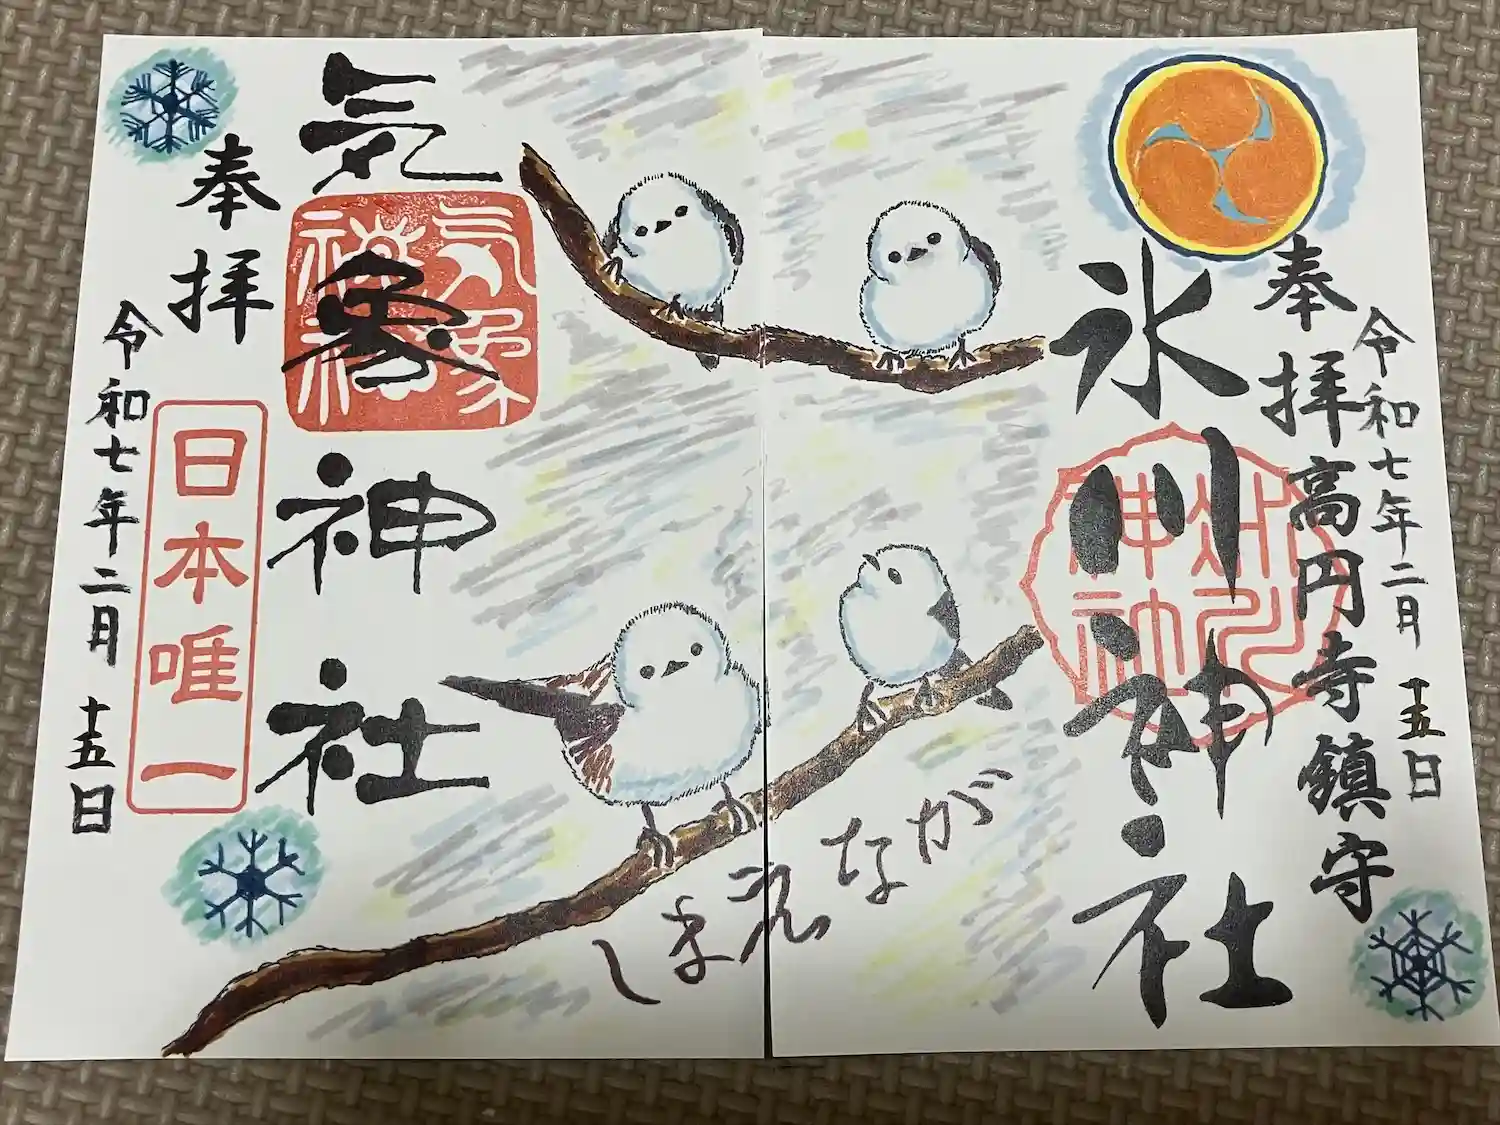 奉拝
令和七年二月十五日
高円寺鎮守
氷川神社
氷川神社
しまえながが
気象神社
気象神社
奉拝
日本唯一
令和七年二月十五日